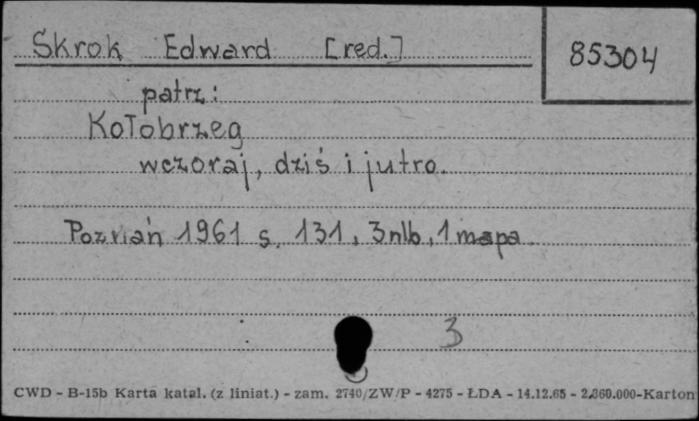 Skrok Edward [red.]
85304
patrz:
Kołobrzeg
wczoraj, dziś i jutro.
Poznań 1961 s. 131, 3nlb, 1 mapa.
3
CWD - B-15b Karta katal. (z liniat.) - zam. 2740/ZW/P - 4275 - ŁDA - 14.12.65 - 2.860.000-Karton